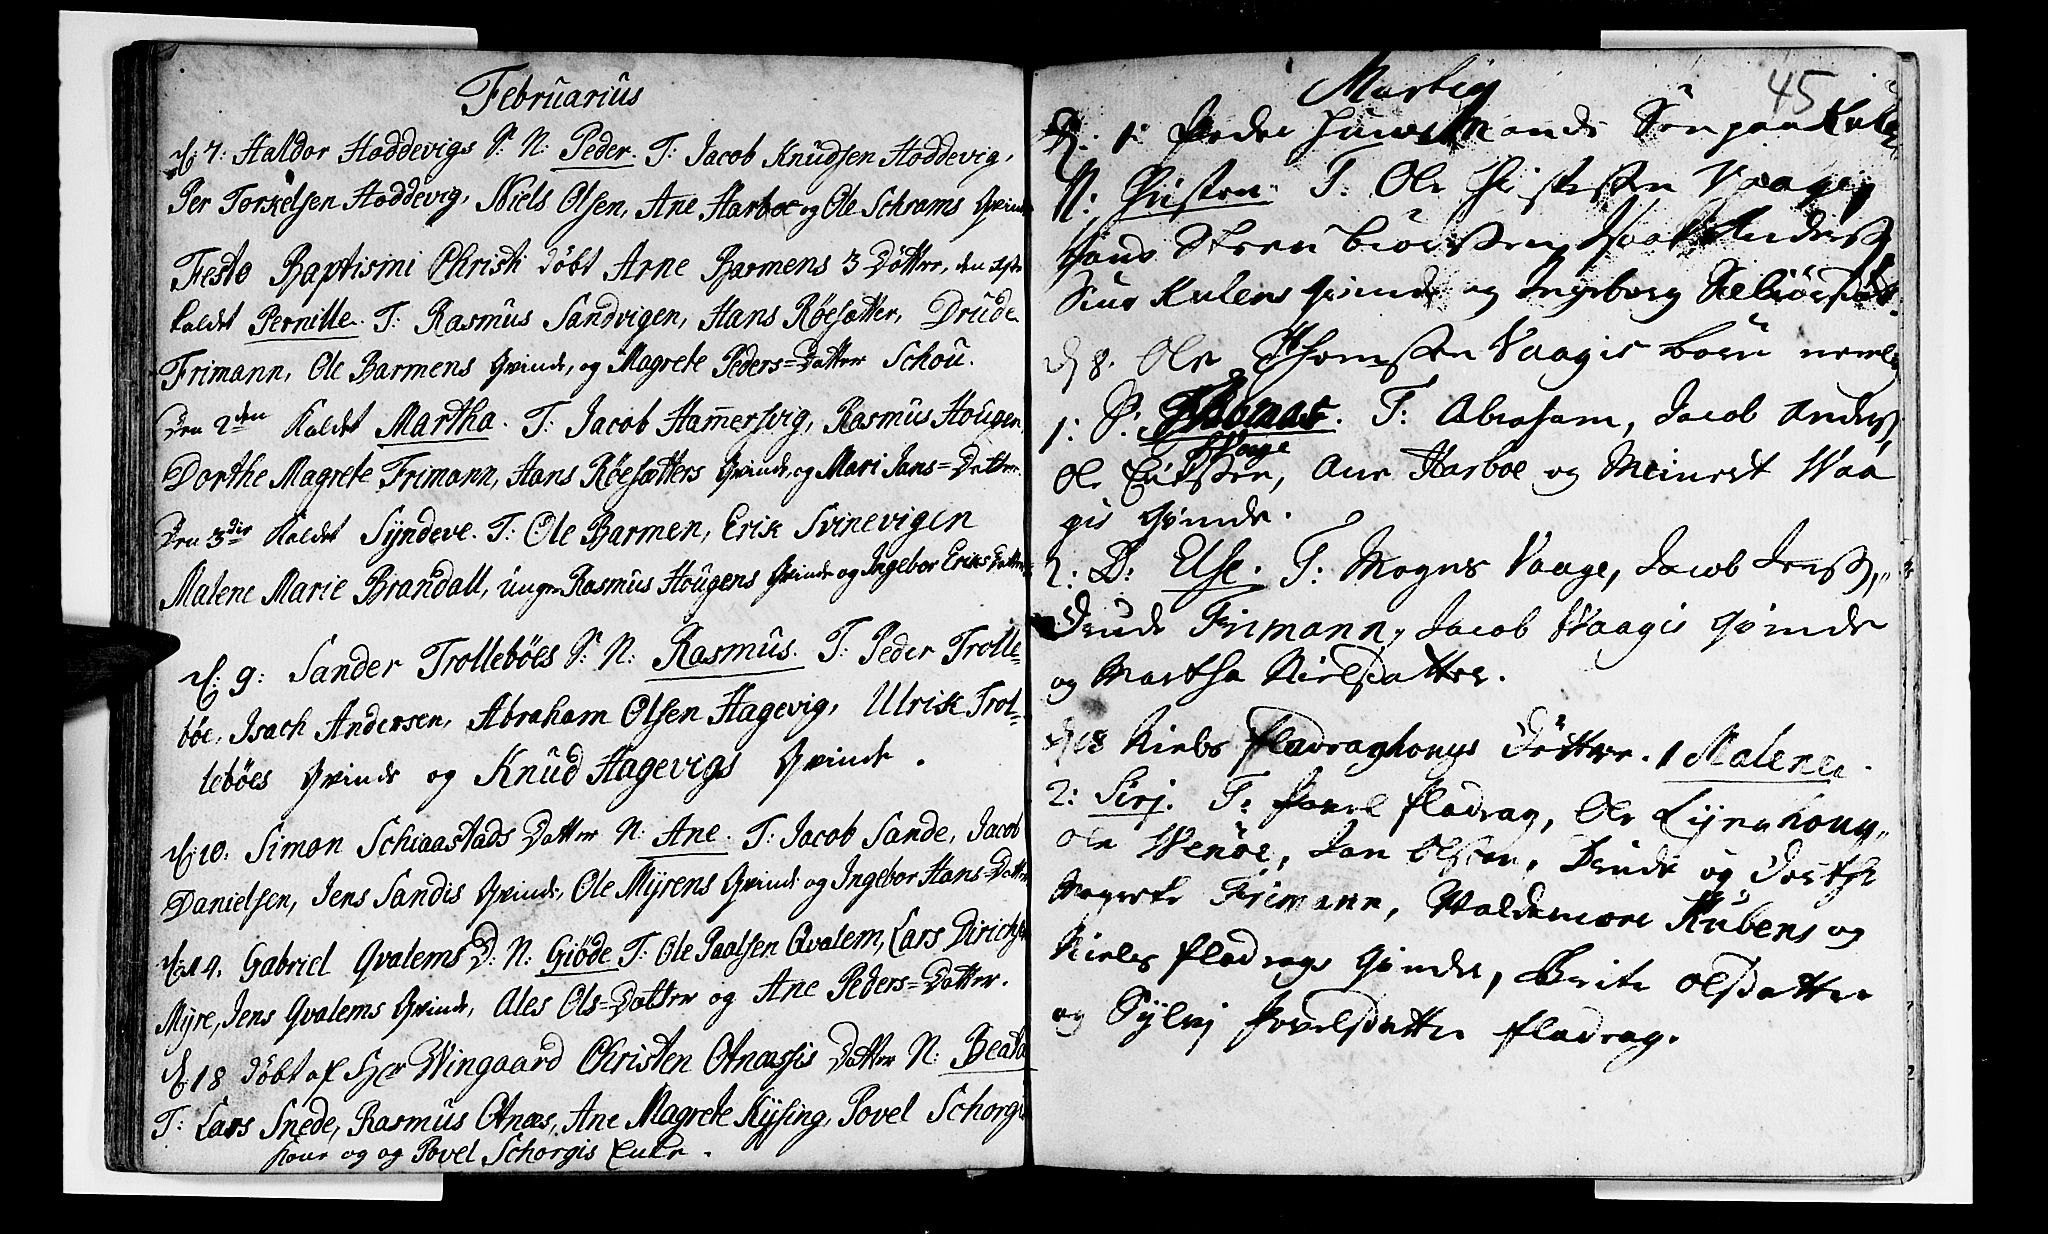 Februarius
d: 7: Haldor Hoddevigs S. N: Peder. T: Jacob Knudsen Hoddevig,
Per Torkelsen Hoddevig, Niels Olsen, Ane Harboe og Ole Schrams Qvinde
Festo Baptismi Christi døbt Arne Barmens 3 Døttre, den
kaldet Pernille. T: Rasmus Sandvigen, Hans Røesætter, Drude
Frimann, Ole Barmens Qvinde, og Magrete Peders=Datter Schou.
Den 2den kaldet Martha. T: Jacob Ham̅ersvig, Rasmus Hougen,
Dorthe Magrete Frimann, Hans Røesætters Qvinde, og Mari Jans=Datter.
Den 3die kaldet Sÿndeve. T: Ole Barmen, Erik Svinevigen
Malene Marie Brandall, unge Rasmus Hougens Qvinde og Ingebor Eriks Datter
d: 9: Sander Trollebøes S. N: Rasmus. T: Peder Trolle-
bøe, Isach Andersen, Abraham Olsen Hagevig, Ulrik Trol-
lebøes Qvinde og Knud Hagevigs Qvinde.
d: 10. Simon Schiaastads Datter N: Ane. T: Jacob Sande, Jacob
Danielsen, Jens Sandis Qvinde, Ole Mÿrens Qvinde og Ingebor Hans=Datter
d: 14. Gabriel Qvalems D: N: Giøde T: Ole Paalsen Qvalem, Lars Dirichs
Mÿre, Jens Qvalems Qvinde, Ales Ols=Datter og Ane Peders=Datter.
d: 18 døbt af Hr Wingaard Christen Otnæssis Datter N: Beata
T: Lars Snede, Rasmus Otnæs, Ane Magrete Kÿsing, Povel Schorgis
kone og og Povel Schorgis Enke.
45
Martij
d. 1: Peder Huusmands Søn paa
N: Christen T: Ole Vaage,
Hans Steen Isaak Anders
Kulens Qvinde og Ingeborg
d 8. Ole Thomssen Vaagis børn
1: S: Thomas. T: Abraham, Jacob Anders
Vaage
Ole Erikssen, Ane Harboe og Meinert Waa
gis Qvinde.
2: D: Else. T: Mogns Vaage, Jacob Jenss,
Drude Frimann, Jacob Waagis Qvinde
og Martha Nielsdatter.
d 18 Niels Fladraghougs Døttre. 1 Malene
2: Sirj. T: Povel Fladrag, Ole Lÿnghoug,
Ole Wenøe, Jan Olssen, Drude og Dorthe
Magrete Frimann, Waldemore Kubens og
Niels Fladrags Qvinde, Brite Olsdatter
og Sÿlvj Povelsdatter Fladrag.